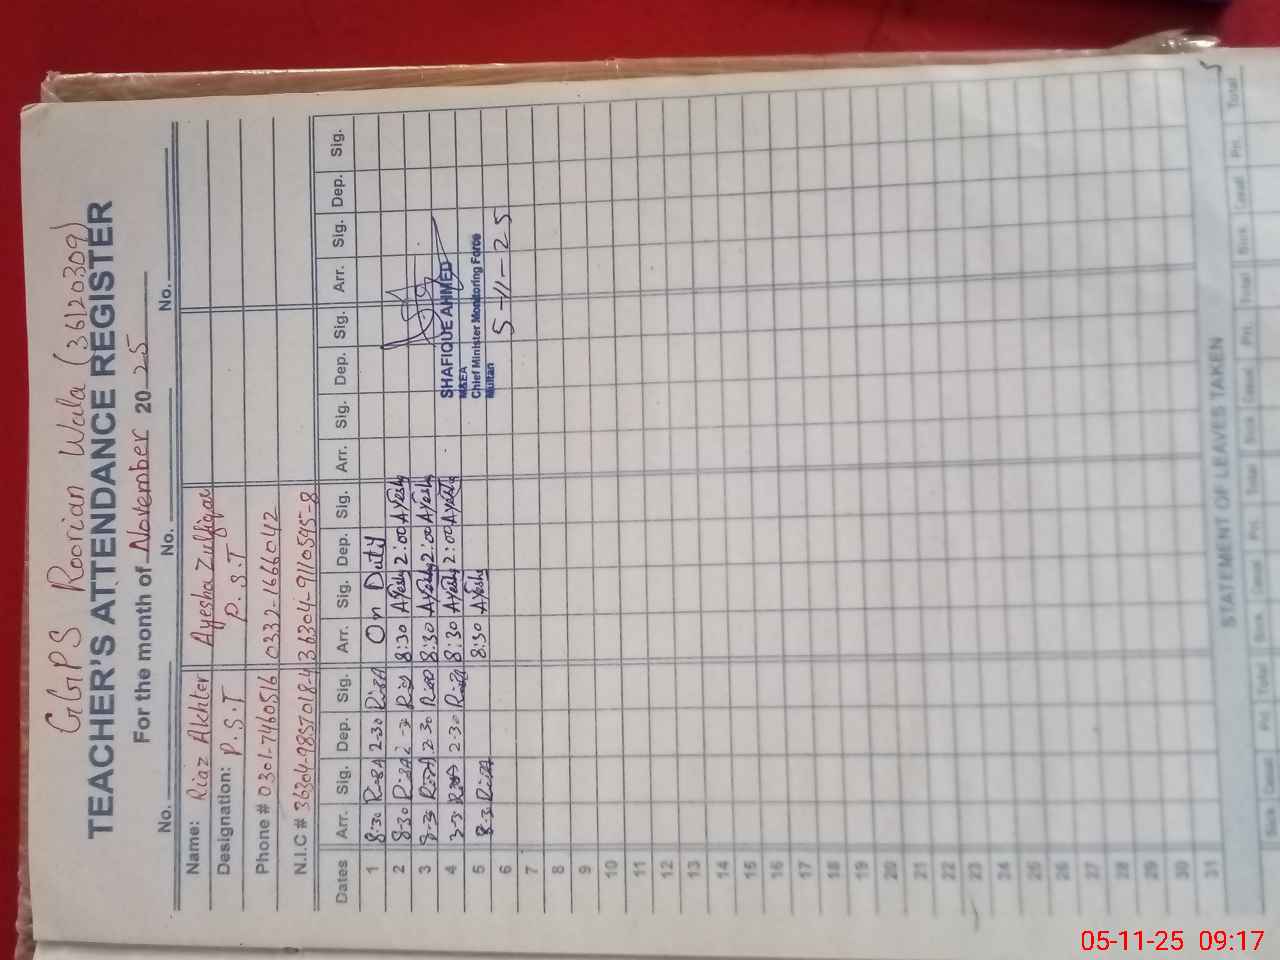 GGPS Roorian Wala (36120309)
TEACHER'S ATTENDANCE REGISTER
For the month of November 20 25
No. No. No. No.
Name: Riaz Akhter Ayesha Zulfiqar
Designation: P.S.T P.S.T
Phone # 0301-7460516 0332-1666042
N.I.C # 36304-9857018-4 36304-9110545-8
Dates Arr. Sig. Dep. Sig. Arr. Sig. Dep. Sig. Arr. Sig. Dep. Sig. Arr. Sig. Dep. Sig.
1 8:30 Riaz 2-30 Riaz On Duty
2 8-30 Riaz Riaz 8:30 Ayesha 2:00 Ayesha
3 Riaz 2-30 Riaz 8:30 Ayesha 2:00 Ayesha
4 Riaz 2-30 Riaz 8:30 Ayesha 2:00 Ayesha
5 8-30 Riaz 8:30 Ayesha
SHAFIQUE AHMED
M&EA
Chief Minister Monitoring Force
Multan
5-11-25
6
7
8
9
10
11
12
13
14
15
16
17
18
19
20
21
22
23
24
25
26
27
28
29
30
31
STATEMENT OF LEAVES TAKEN
Sick Casual Pri. Total Sick Casual Pri. Total Sick Casual Pri. Total Sick Casual Pri. Total
05-11-25 09:17